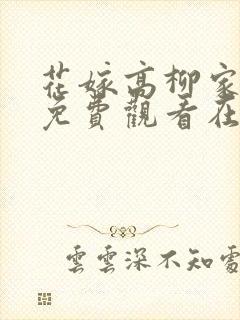 花嫁高柳家
免費觀看在
雲雲深不知處